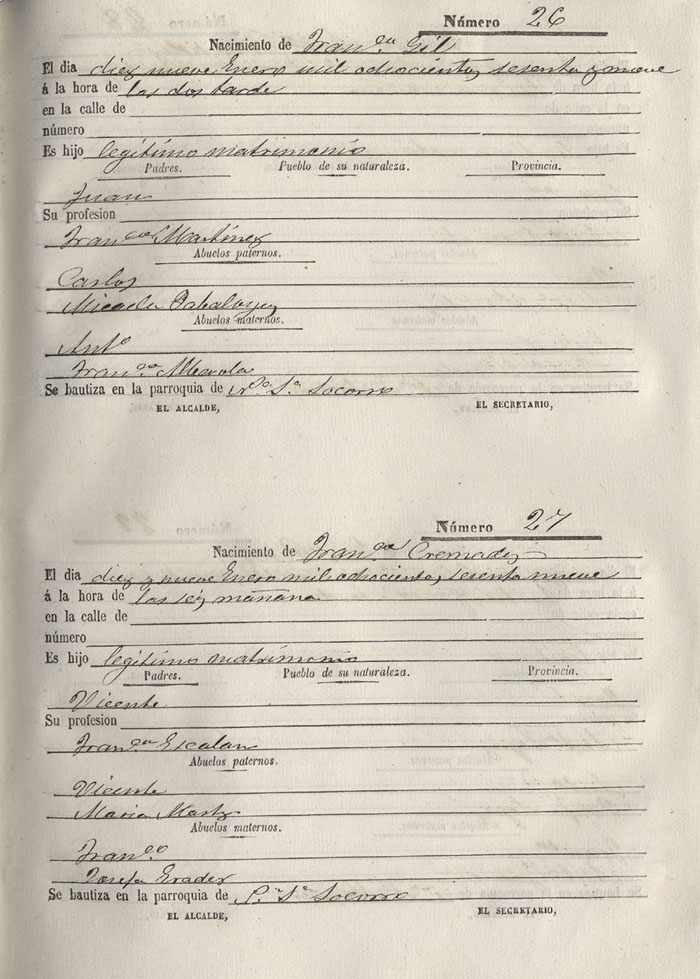 Número 26
Nacimiento de Fran.ca Gil
El dia diez nueve Enero mil ochocientos sesenta y nueve
á la hora de las dos tarde
en la calle de
número
Es hijo legítimo matrimonio
Padres. Pueblo de su naturaleza. Provincia.
Juan
Su profesion
Fran.ca Martínez
Abuelos paternos.
Carlos
Micaela
Abuelos maternos.
Ant.o
Fran.ca
Se bautiza en la parroquia de N.a S.a Socorro
EL ALCALDE, EL SECRETARIO,
Número 27
Nacimiento de Fran.ca Cremades
El dia diez y nueve Enero mil ochocientos sesenta nueve
á la hora de las seis mañana
en la calle de
número
Es hijo legítimo matrimonio
Padres. Pueblo de su naturaleza. Provincia.
Vicente
Su profesion
Fran.ca
Abuelos paternos.
Vicente
Maria Martz
Abuelos maternos.
Fran.co
Josefa
Se bautiza en la parroquia de S.a Socorro
EL ALCALDE, EL SECRETARIO,